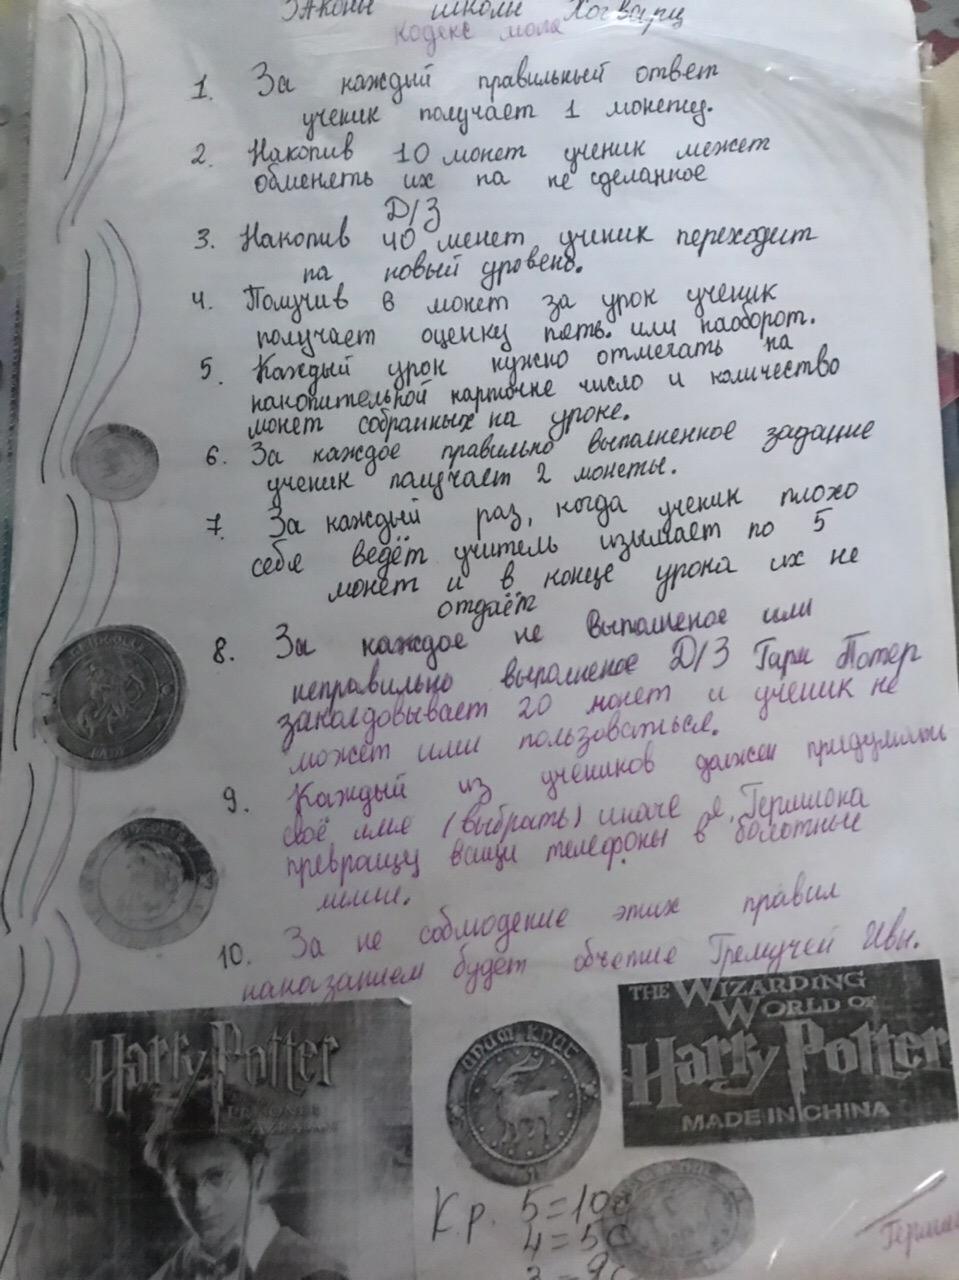 Законы школы Хогварц
кодекс мола
1. За каждый правильный ответ
ученик получает 1 монету.
2. Накопив 10 монет ученик может
обменять их на не сделанное
Д/З
3. Накопив 40 монет ученик переходит
на новый уровень.
4. Получив 6 монет за урок ученик
получает оценку пять. или наоборот.
5. Каждый урок нужно отмечать на
накопительной карточке число и количество
монет собранных на уроке.
6. За каждое правильно выполненное задание
ученик получает 2 монеты.
7. За каждый раз, когда ученик плохо
себя ведёт учитель изымает по 5
монет и в конце урока их не
отдаёт
8. За каждое не выполненое или
неправильно выполненое Д/З Гари Потер
заколдовывает 20 монет и ученик не
может ими пользоваться.
9. Каждый из учеников должен придумать
своё имя (выбрать) иначе я, Гермиона
превращу ваши телефоны в болотные
10. За не соблюдение этих правил
наказанием будет объятие Гремучей Ивы.
Harry Potter
THE WIZARDING
WORLD OF
Harry Potter
MADE IN CHINA
К.р. 5=10
4=5